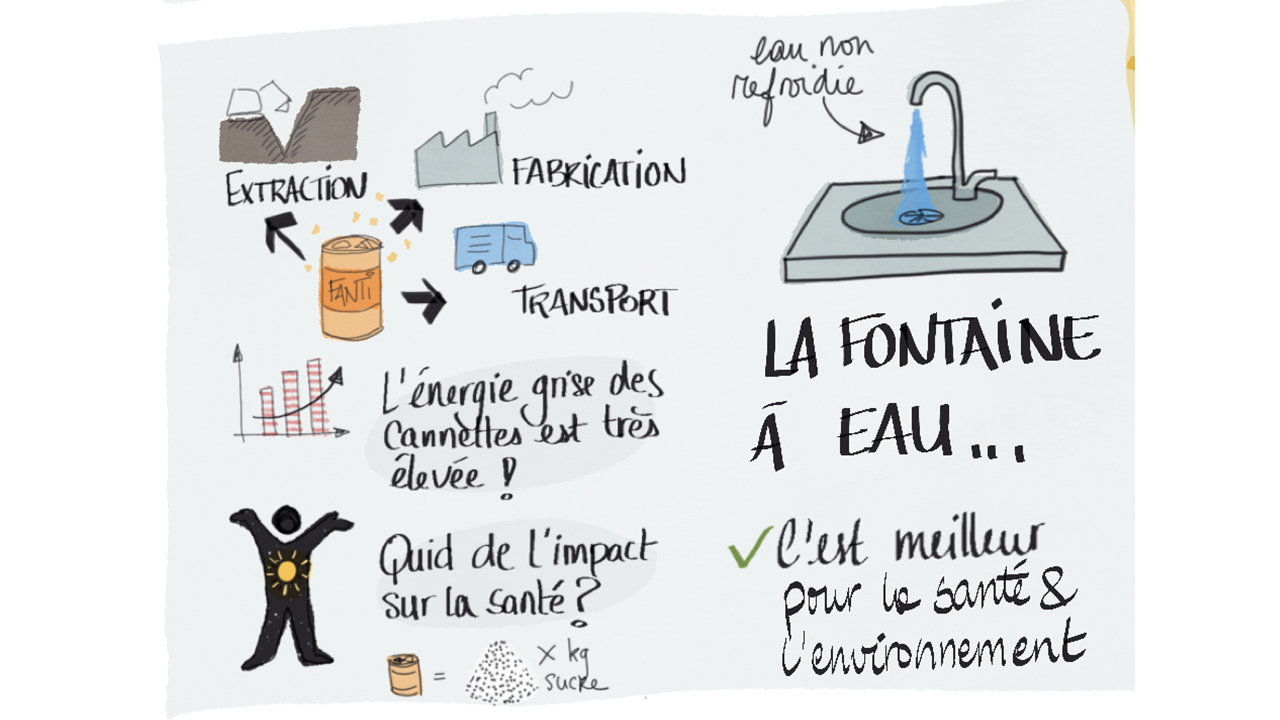 EXTRACTION
FABRICATION
FANTI
TRANSPORT
L'énergie grise des
Cannettes est très
élevée !
Quid de l'impact
sur la santé ?
= x kg
sucre
eau non
refroidie
LA FONTAINE
À EAU...
C'est meilleur
pour la santé &
l'environnement